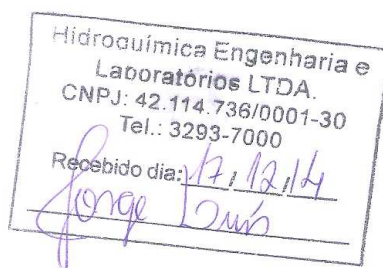 Hidroquímica Engenharia e
Laboratórios LTDA.
CNPJ: 42.114.736/0001-30
Tel.: 3293-7000
Recebido dia: 17 / 12 / 14
Jorge Luis